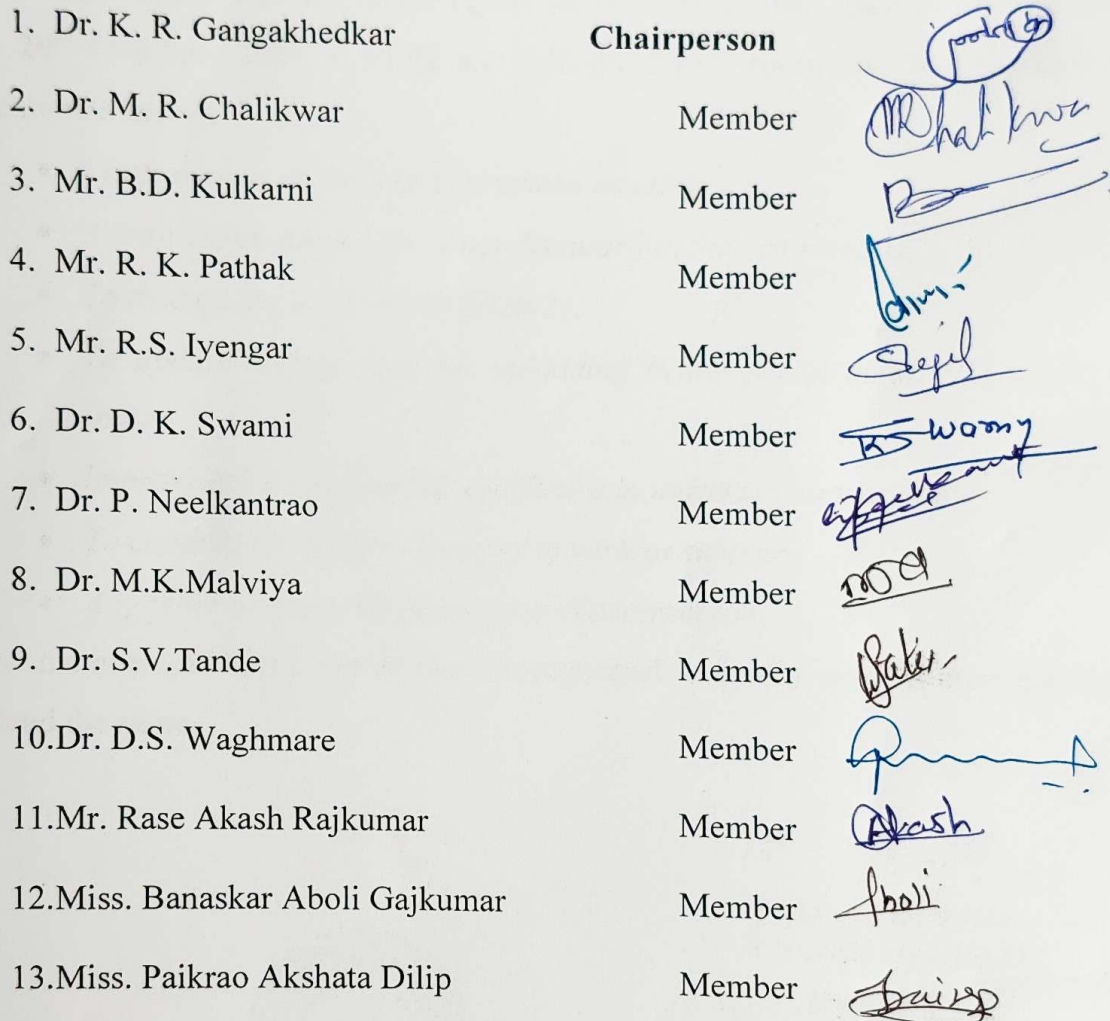 1. Dr. K. R. Gangakhedkar Chairperson
2. Dr. M. R. Chalikwar Member
3. Mr. B.D. Kulkarni Member
4. Mr. R. K. Pathak Member
5. Mr. R.S. Iyengar Member
6. Dr. D. K. Swami Member
7. Dr. P. Neelkantrao Member
8. Dr. M.K.Malviya Member
9. Dr. S.V.Tande Member
10.Dr. D.S. Waghmare Member
11.Mr. Rase Akash Rajkumar Member Akash
12.Miss. Banaskar Aboli Gajkumar Member Aboli
13.Miss. Paikrao Akshata Dilip Member